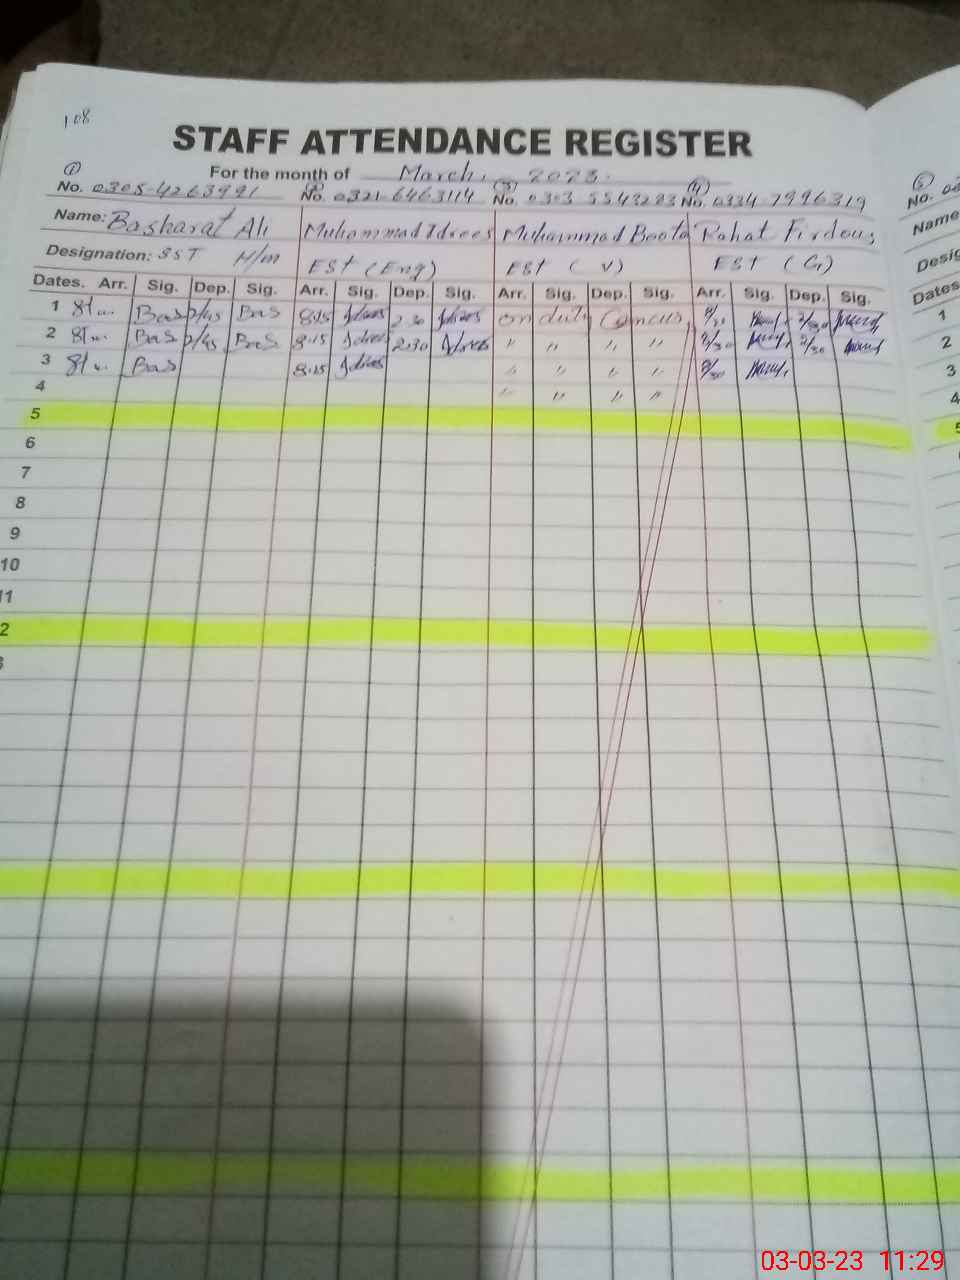 108
STAFF ATTENDANCE REGISTER
For the month of March, 2023.
① No. 0305-4263991 ② No. 0321-6463114 ③ No. 0303 5543283 ④ No. 0334-7996319 ⑤ No.
Name: Basharat Ali Muhammad Idrees Muhammad Boota Rahat Firdous Name
Designation: SST H/m EST (Eng) EST (V) EST (G) Desig
Dates. Arr. Sig. Dep. Sig. Arr. Sig. Dep. Sig. Arr. Sig. Dep. Sig. Arr. Sig. Dep. Sig. Dates
1 Bas 2/45 Bas 8:15 Idrees 2:30 Idrees on duty Cencus, 2/30 1
2 Bas 2/45 Bas 8:15 Idrees 2:30 Idrees " " " " 2/30 2
3 Bas 8:15 Idrees " " " " 3
4 " " " " 4
5 5
6
7
8
9
10
11
2
3
03-03-23 11:29